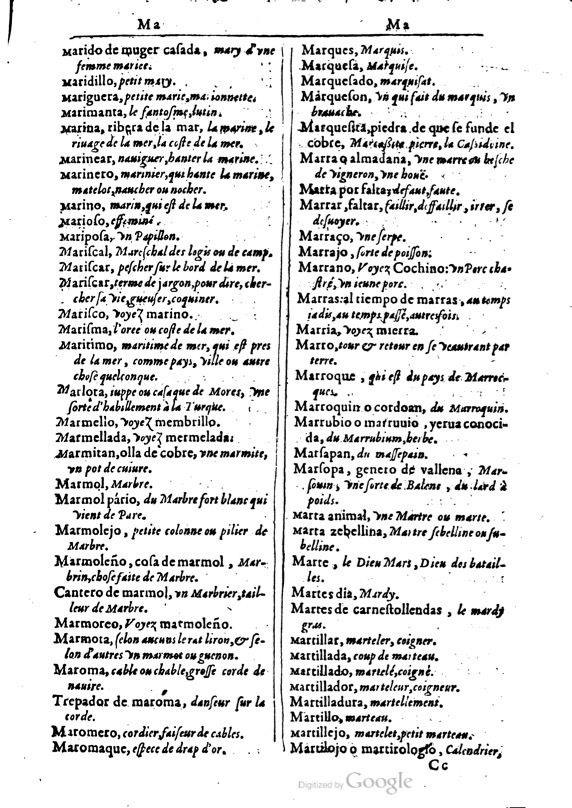 Ma
Marido de muger caſada, mary d'vne
femme mariee.
Maridillo, petit mary.
Mariguera, petite marie, marionnette.
Marimanta, le fantoſme, lutin.
Marina, ribera de la mar, la marine, le
riuage de la mer, la coſte de la mer.
Marinear, nauiguer, hanter la marine.
Marinero, marinier, qui hante la marine,
matelot, naucher ou nocher.
Marino, marin, qui est de la mer.
Marioſo, effeminé.
Maripoſa, vn Papillon.
Mariſcal, Mareſchal des logis ou de camp.
Mariſcar, peſcher ſur le bord de la mer.
Mariſcar, terme de jargon, pour dire, cher-
cher ſa vie, gueuſer, coquiner.
Mariſco, voyez marino.
Mariſma, l'oree ou coſte de la mer.
Maritimo, maritime de mer, qui est pres
de la mer, comme pays, ville ou autre
choſe quelconque.
Marlota, iuppe ou caſaque de Mores, vne
ſorte d'habillement à la Turque.
Marmello, voyez membrillo.
Marmellada, voyez mermelada.
Marmitan, olla de cobre, vne marmite,
vn pot de cuiure.
Marmol, Marbre.
Marmol pário, du Marbre fort blanc qui
vient de Pare.
Marmolejo, petite colonne ou pilier de
Marbre.
Marmoleño, coſa de marmol, Mar-
brin, choſe faite de Marbre.
Cantero de marmol, vn Marbrier, tail-
leur de Marbre.
Marmoreo, Voyez marmoleño.
Marmota, ſelon aucuns le rat liron, & ſe-
lon d'autres vn marmot ou guenon.
Maroma, cable ou chable, groſſe corde de
nauire.
Trepador de maroma, danſeur ſur la
corde.
Maromero, cordier, faiſeur de cables.
Maromaque, eſpece de drap d'or.
Ma
Marques, Marquis.
Marqueſa, Marquiſe.
Marqueſado, marquiſat.
Marqueſon, vn qui fait du marquis, vn
brauache.
Marqueſita, piedra de que ſe funde el
cobre, Marcaſite pierre, la Caſsidoine.
Marra o almadana, vne marre ou beſche
de vigneron, vne houë.
Marra por falta, defaut, faute.
Marrar, faltar, faillir, deffaillir, errer, ſe
deſuoyer.
Marraço, vne ſerpe.
Marrajo, ſorte de poiſſon.
Marrano, Voyez Cochino: vn Porc cha-
ſtré, vn ieune porc.
Marras: al tiempo de marras, au temps
iadis, au temps paſſé, autresfois.
Marria, voyez mierra.
Marro, tour & retour en ſe veautrant par
terre.
Marroque, qui est du pays de Marroc-
ques.
Marroquin o cordoan, du Marroquin.
Marrubio o marruuio, yerua conoci-
da, du Marrubium, herbe.
Marſapan, du maſſepain.
Marſopa, genero de vallena, Mar-
ſouin, vne ſorte de Balene, du lard à
poids.
Marta animal, vne Martre ou marte.
Marta zebellina, Martre ſebelline ou ſu-
belline.
Marte, le Dieu Mars, Dieu des batail-
les.
Martes dia, Mardy.
Martes de carneſtollendas, le mardy
gras.
Martillar, marteler, coigner.
Martillada, coup de marteau.
Martillado, martelé, coigné.
Martillador, marteleur, coigneur.
Martilladura, martellement.
Martillo, marteau.
Martillejo, martelet, petit marteau.
Martilojo o martirologio, Calendrier,
Cc
Digitized by Google